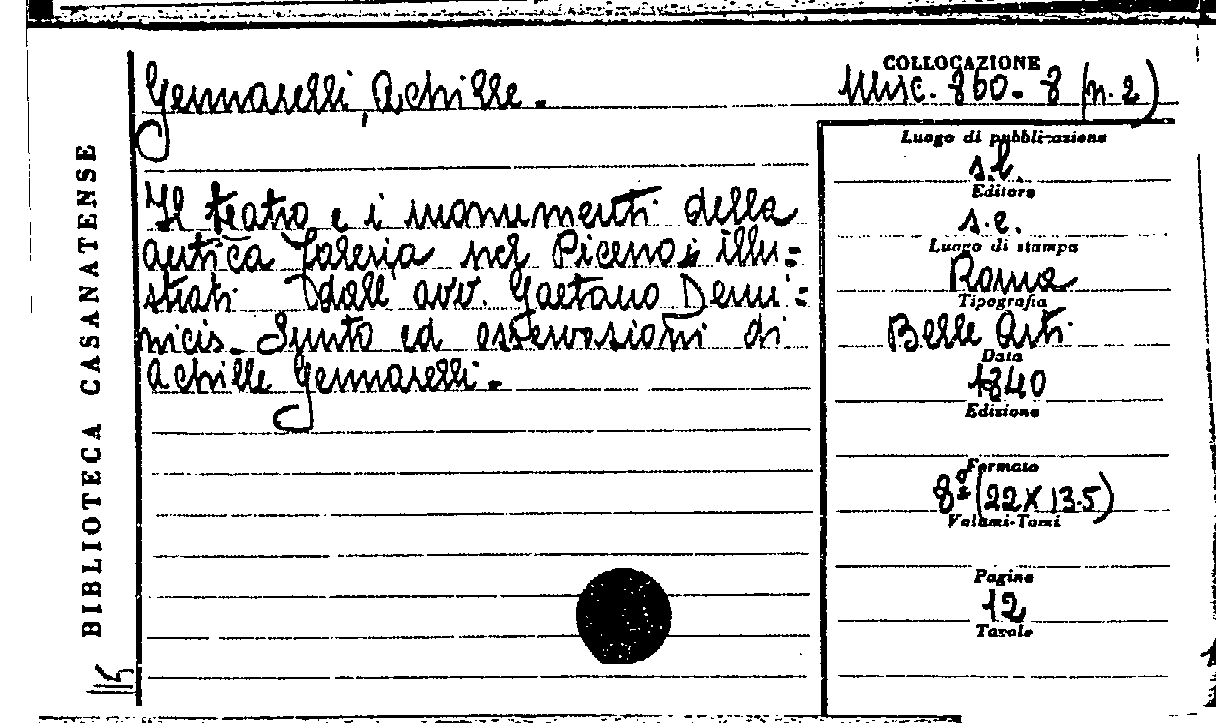 COLLOCAZIONE
Gennarelli, Achille.
Misc. 860. 8 (n. 2)
Il teatro e i monumenti della
antica Faleria nel Piceno illu=
strati dall' avv. Gaetano Demi=
nicis. Sunto ed osservazioni di
Achille Gennarelli.
Luogo di pubblicazione
s.l.
Editore
s.e.
Luogo di stampa
Roma
Tipografia
Belle Arti
Data
1840
Edizione
Formato
8° (22 X 13.5)
Volumi-Tomi
Pagine
12
Tavole
BIBLIOTECA CASANATENSE